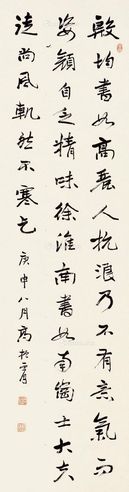 殷均書如高麗人抗浪乃不有意氣而
姿顏自乏精味徐淮南書如南岡士大夫
徒尚風軌然不寒乞
庚申八月